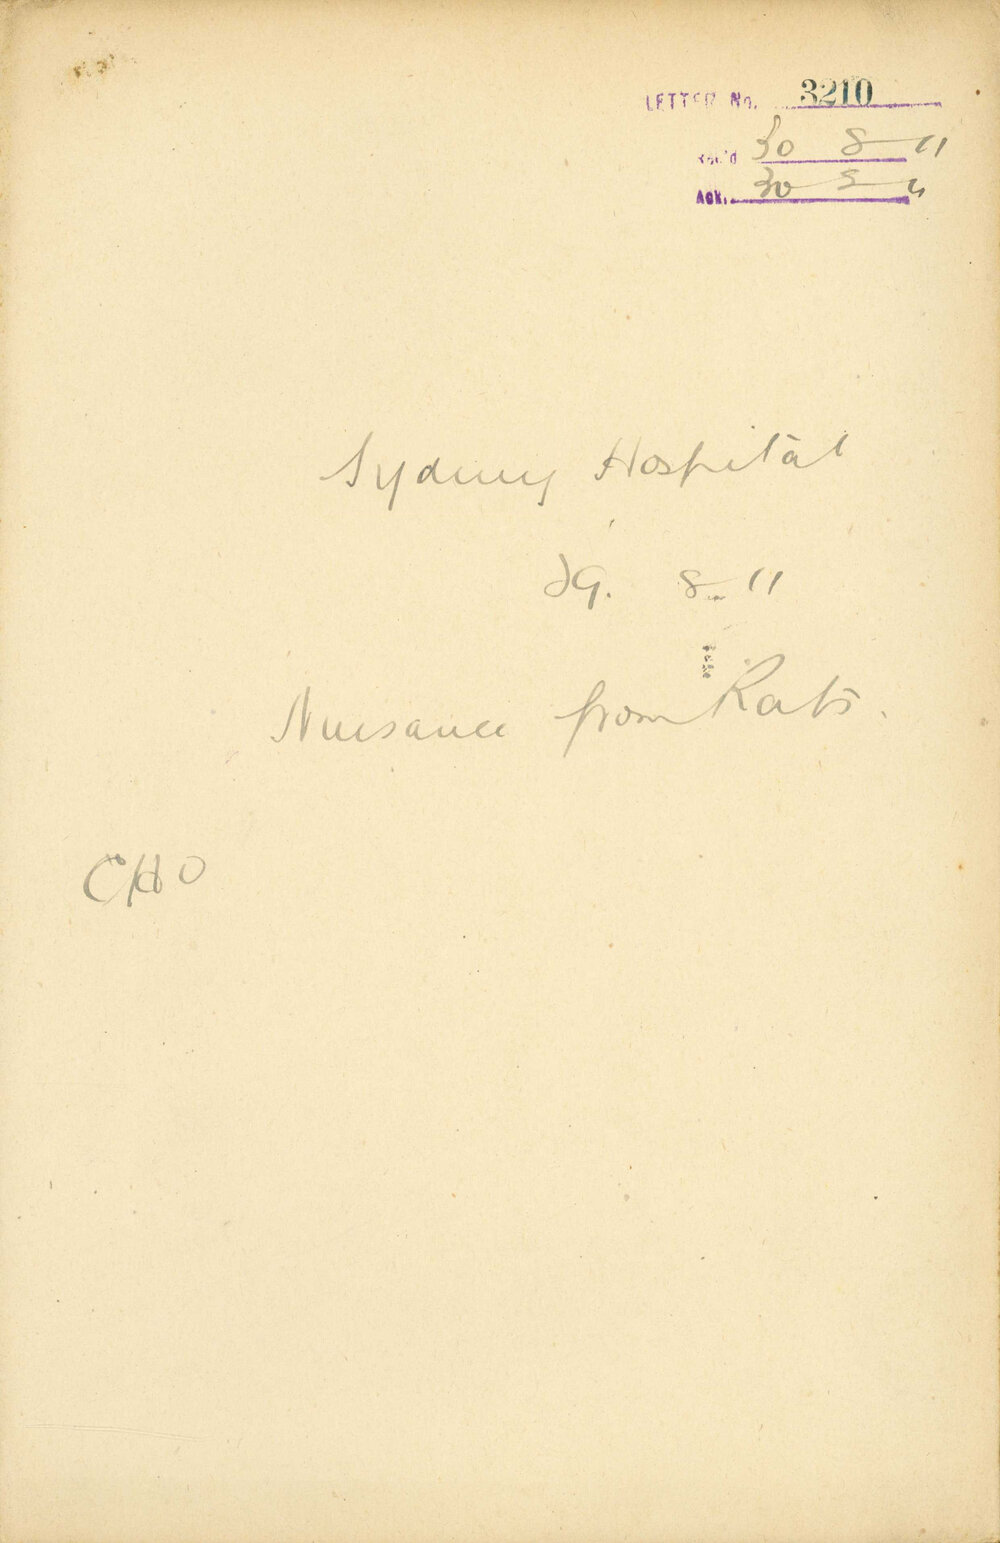 LETTER No. 3210
Rec'd 30 8 11
Ack. 30 8 11
Sydney Hospital
29. 8 11
Nuisance from Rats.
CHO